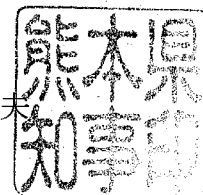 熊本県
夫
知事印